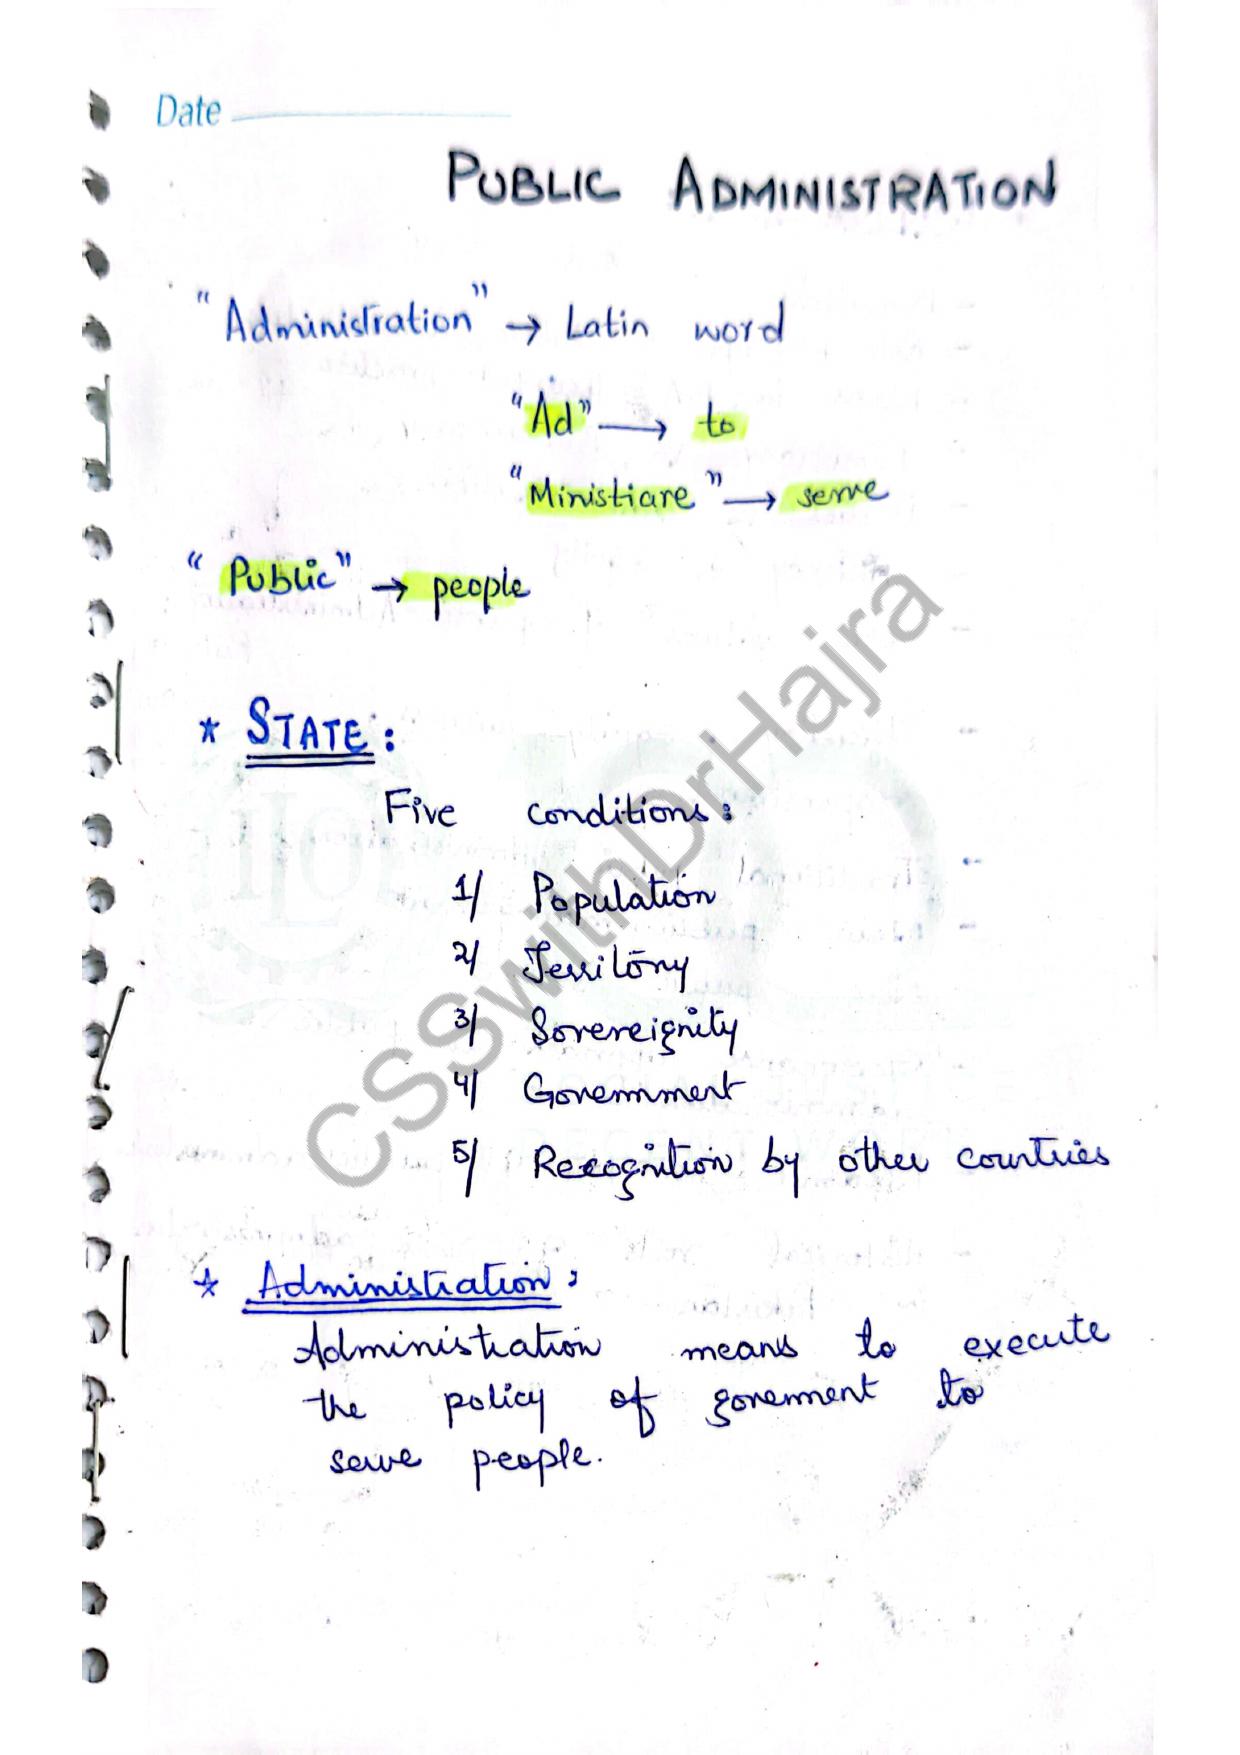 Date
PUBLIC ADMINISTRATION
"Administration" → Latin word
"Ad" → to
"Ministiare" → serve
"Public" → people
* STATE:
Five conditions:
1/ Population
2/ Territory
3/ Sovereignity
4/ Government
5/ Recognition by other countries
* Administration:
Administration means to execute
the policy of government to
serve people.
CSSwithDrHajra